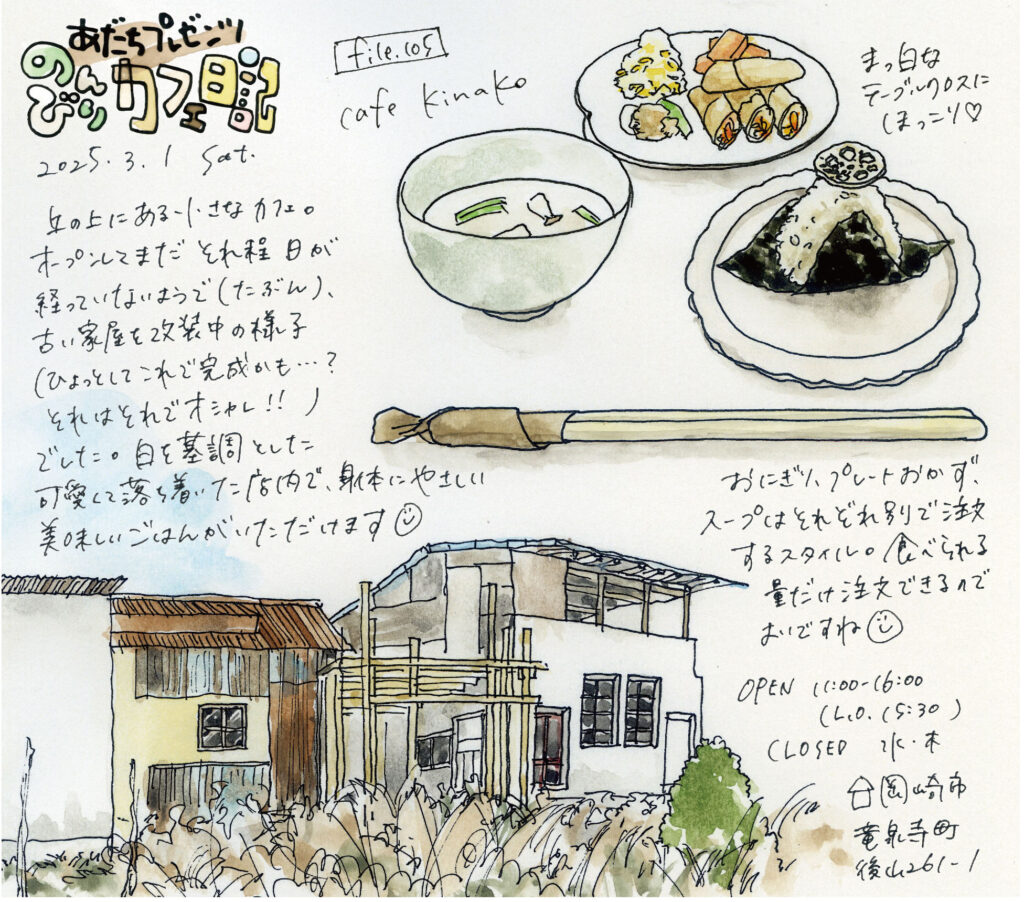 あだちプレゼンツ
のんびりカフェ日記
2025.3.1 Sat.
file.105
cafe kinako
まっ白な
テーブルクロスに
ほっこり♡
丘の上にある小さなカフェ。
オープンしてまだそれ程日が
経っていないようで(たぶん)、
古い家屋を改装中の様子
(ひょっとしてこれで完成かも…?
それはそれでオシャレ!!)
でした。白を基調とした
可愛くて落ち着いた店内で、身体にやさしい
美味しいごはんがいただけます
おにぎり、プレートおかず、
スープはそれぞれ別で注文
するスタイル。食べられる
量だけ注文できるので
よいですね
OPEN 11:00-16:00
(L.O. 15:30)
CLOSED 水・木
岡崎市
竜泉寺町
後山261-1